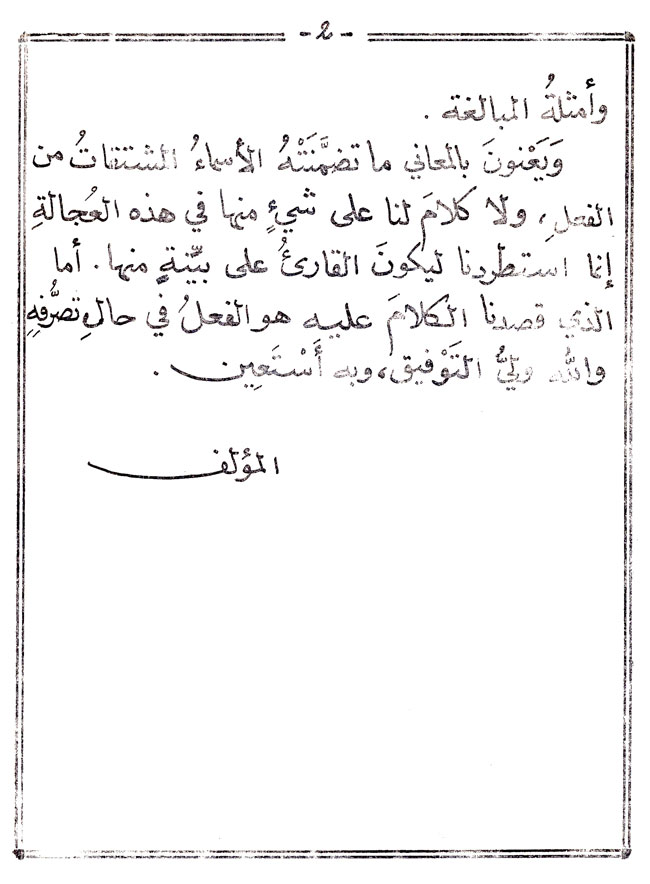 - 2 -
وأمثلةُ المبالغة .
وَيَعْنونَ بالمعاني ما تضمَّنَتْهُ الأسماءُ المشتقاتُ من
الفعلِ، ولا كلامَ لنا على شيءٍ منها في هذه العُجالةِ
إنما استطردنا ليكونَ القارئُ على بيِّنةٍ منها . أما
الذي قصدنا الكلامَ عليه هو الفعلُ في حالِ تصرُّفِهِ
والله وليُّ التَوْفيق، وبه أَسْتَعِين .
المؤلف